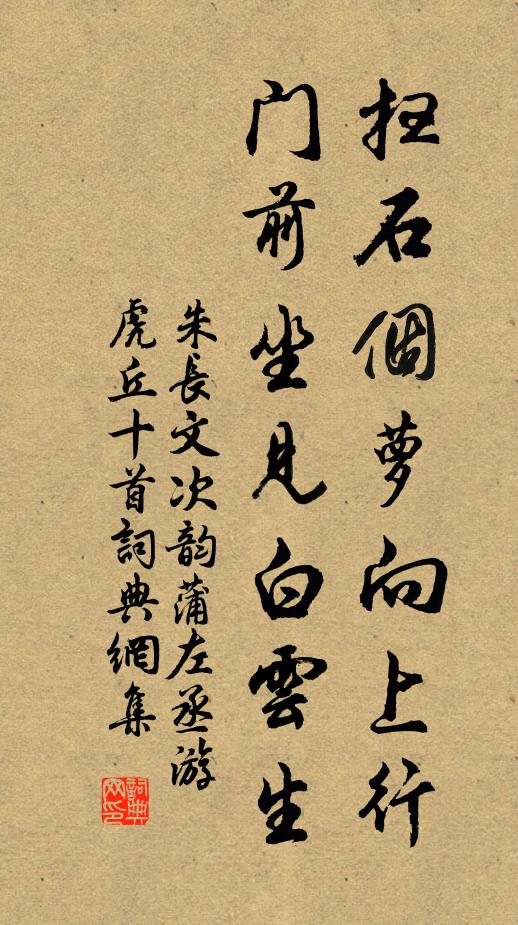 石個萝向上行
门前坐見白雲生
朱長文次韵蒲左丞游
虎丘十首詞典網集
詞典
网印